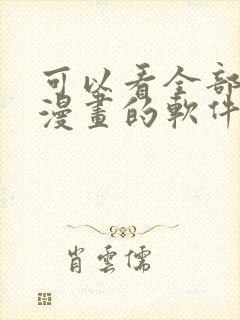 可以看全部
漫畫的軟件
肖雲儒